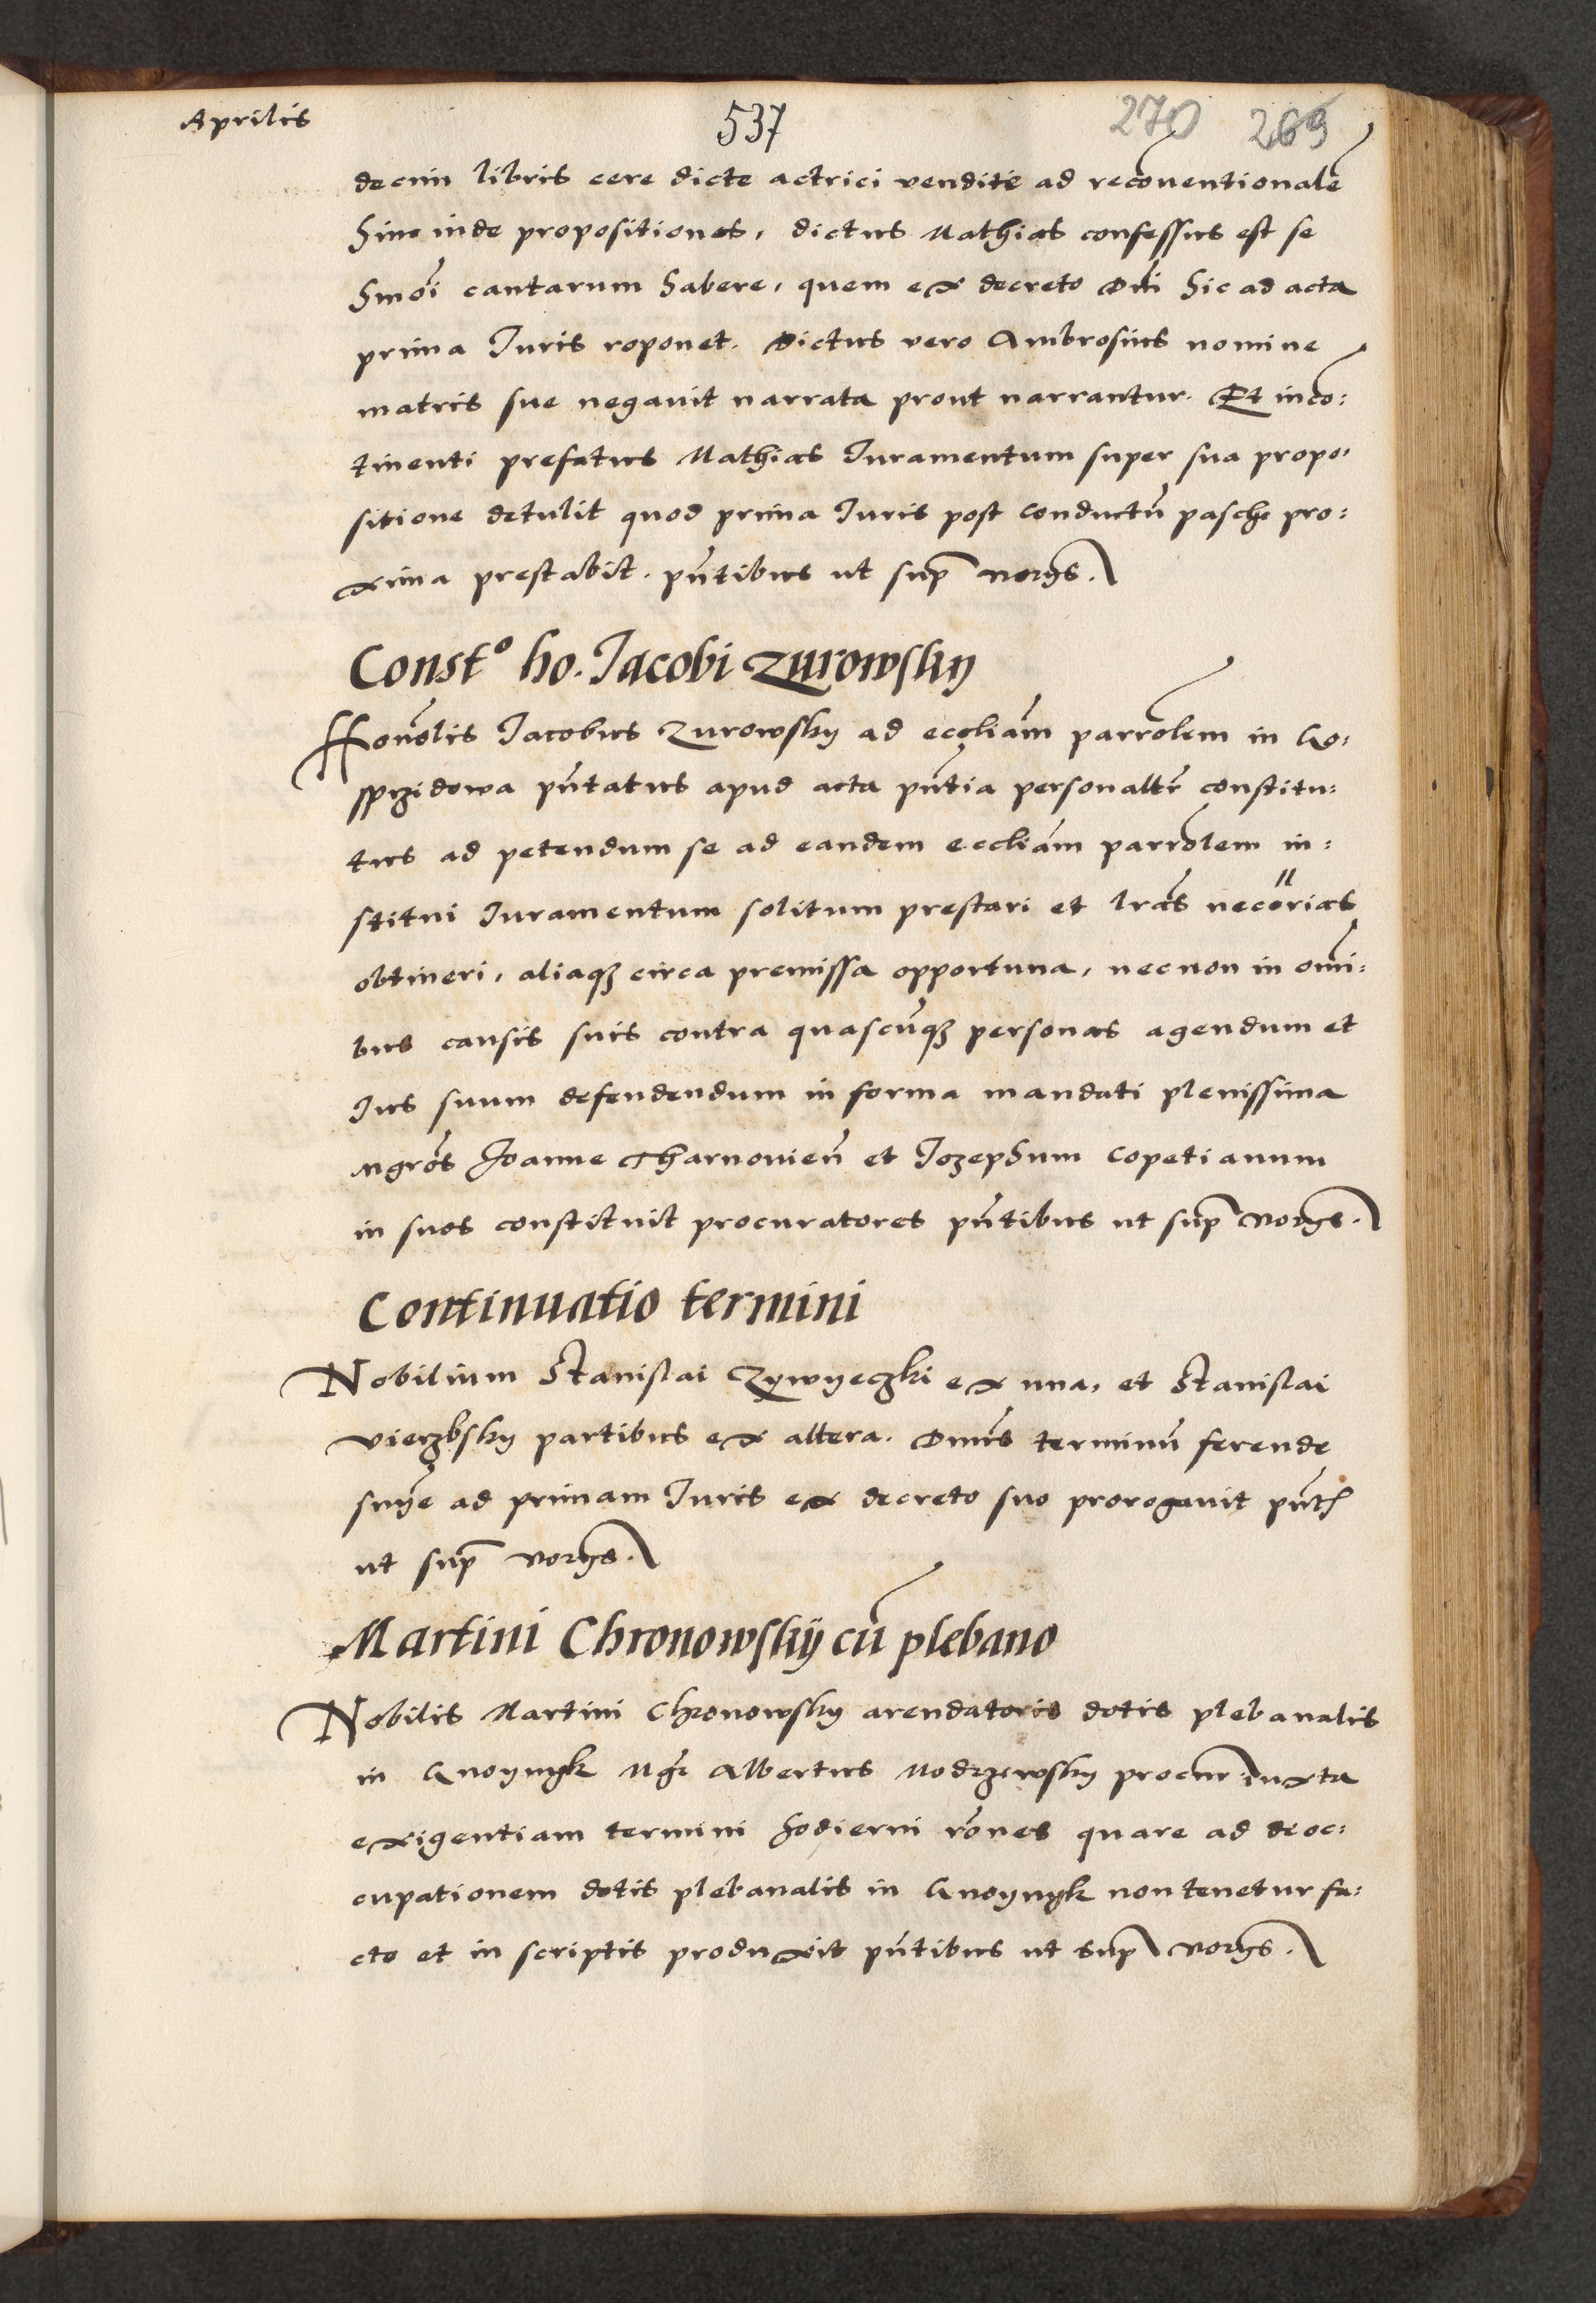 Aprilis 537 270 269
decim libris cere dicte actrici vendite ad reconventionalē
hinc inde propositiones, dictus Mathias confessus est se
hmōi cantarum habere, quem ex decreto Dñi hic ad acta
prima Iuris reponet. Dictus vero Ambrosius nomine
matris sue negavit narrata prout narrantur. Et incō:
tinenti prefatus Mathias Iuramentum super sua propo:
sitione detulit quod prima Iuris post conductū pasche pro:
xima prestabit. pn̄tibus ut sup̄ norys.
Constº ho. Jacobi Zurowsky
Honōlis Jacobus Zurowsky ad eccliām parrōlem in Go:
sprzidowa pn̄tatus apud acta pn̄tia personaltr̄ constitu:
tus ad petendum se ad eandem eccliām parrōlem in:
stitui Iuramentum solitum prestari et lrās necōrias
obtineri, aliaqȝ circa premissa opportuna, necnon in om̄i:
bus causis suis contra quascūqȝ personas agendum et
Ius suum defendendum in forma mandati plenissima
Mgrōs Joanne Tharnovien̄ et Jozephum Copetianum
in suos constituit procuratores pn̄tibus ut sup̄ norys.
Continuatio termini
Nobilium Stanislai Zywyeczki ex una, et Stanislai
Vierzbsky partibus ex altera. Dnūs terminū ferende
snīe ad primam Iuris ex decreto suo prorogavit pn̄t
ut sup̄ norys.
Martini Chronowskÿ cū plebano
Nobilis Martini Chronowsky arendatoris dotis plebanalis
in Gnoynyk Mgr̄ Albertus Modrzewsky procur iuxta
exigentiam termini hodierni rōnes quare ad deoc:
cupationem dotis plebanalis in Gnoynyk non tenetur fa:
cto et in scriptis produxit pn̄tibus ut sup̄ norys.